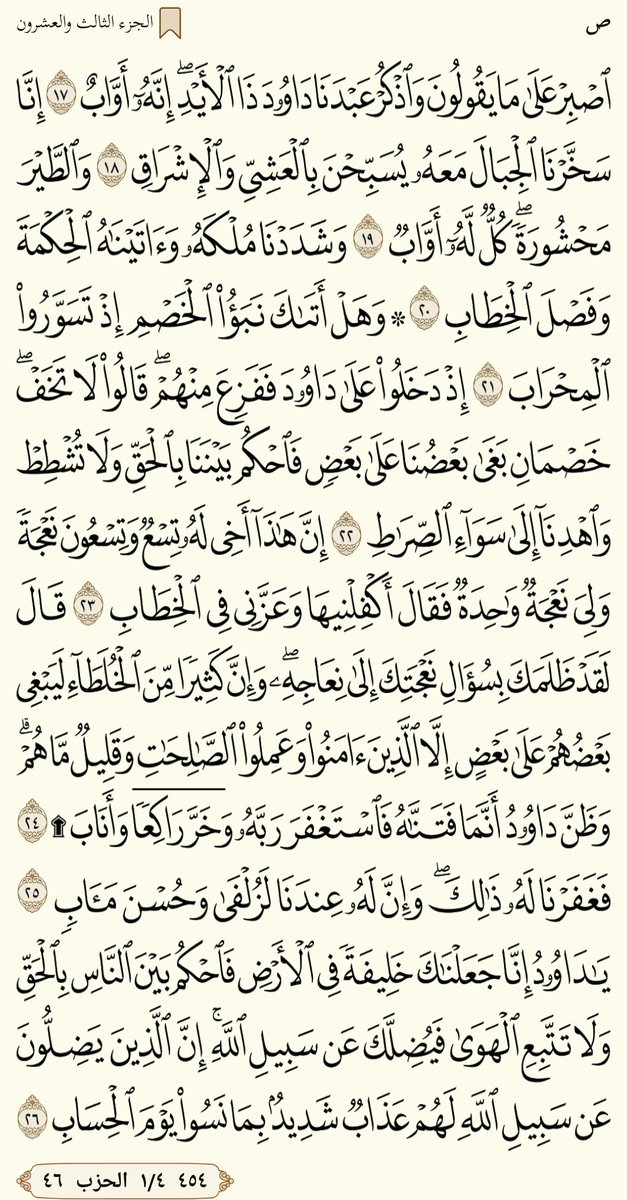 ص الجزء الثالث والعشرون
ٱصْبِرْ عَلَىٰ مَا يَقُولُونَ وَٱذْكُرْ عَبْدَنَا دَاوُۥدَ ذَا ٱلْأَيْدِۖ إِنَّهُۥٓ أَوَّابٌ ١٧ إِنَّا
سَخَّرْنَا ٱلْجِبَالَ مَعَهُۥ يُسَبِّحْنَ بِٱلْعَشِىِّ وَٱلْإِشْرَاقِ ١٨ وَٱلطَّيْرَ
مَحْشُورَةًۖ كُلٌّ لَّهُۥٓ أَوَّابٌ ١٩ وَشَدَدْنَا مُلْكَهُۥ وَءَاتَيْنَٰهُ ٱلْحِكْمَةَ
وَفَصْلَ ٱلْخِطَابِ ٢٠ ۞ وَهَلْ أَتَىٰكَ نَبَؤُا۟ ٱلْخَصْمِ إِذْ تَسَوَّرُوا۟
ٱلْمِحْرَابَ ٢١ إِذْ دَخَلُوا۟ عَلَىٰ دَاوُۥدَ فَفَزِعَ مِنْهُمْۖ قَالُوا۟ لَا تَخَفْۖ
خَصْمَانِ بَغَىٰ بَعْضُنَا عَلَىٰ بَعْضٍ فَٱحْكُم بَيْنَنَا بِٱلْحَقِّ وَلَا تُشْطِطْ
وَٱهْدِنَآ إِلَىٰ سَوَآءِ ٱلصِّرَٰطِ ٢٢ إِنَّ هَٰذَآ أَخِى لَهُۥ تِسْعٌ وَتِسْعُونَ نَعْجَةً
وَلِىَ نَعْجَةٌ وَٰحِدَةٌ فَقَالَ أَكْفِلْنِيهَا وَعَزَّنِى فِى ٱلْخِطَابِ ٢٣ قَالَ
لَقَدْ ظَلَمَكَ بِسُؤَالِ نَعْجَتِكَ إِلَىٰ نِعَاجِهِۦۖ وَإِنَّ كَثِيرًا مِّنَ ٱلْخُلَطَآءِ لَيَبْغِى
بَعْضُهُمْ عَلَىٰ بَعْضٍ إِلَّا ٱلَّذِينَ ءَامَنُوا۟ وَعَمِلُوا۟ ٱلصَّٰلِحَٰتِ وَقَلِيلٌ مَّا هُمْۗ
وَظَنَّ دَاوُۥدُ أَنَّمَا فَتَنَّٰهُ فَٱسْتَغْفَرَ رَبَّهُۥ وَخَرَّ رَاكِعًا وَأَنَابَ ۩ ٢٤
فَغَفَرْنَا لَهُۥ ذَٰلِكَۖ وَإِنَّ لَهُۥ عِندَنَا لَزُلْفَىٰ وَحُسْنَ مَـَٔابٍ ٢٥
يَٰدَاوُۥدُ إِنَّا جَعَلْنَٰكَ خَلِيفَةً فِى ٱلْأَرْضِ فَٱحْكُم بَيْنَ ٱلنَّاسِ بِٱلْحَقِّ
وَلَا تَتَّبِعِ ٱلْهَوَىٰ فَيُضِلَّكَ عَن سَبِيلِ ٱللَّهِۚ إِنَّ ٱلَّذِينَ يَضِلُّونَ
عَن سَبِيلِ ٱللَّهِ لَهُمْ عَذَابٌ شَدِيدٌۢ بِمَا نَسُوا۟ يَوْمَ ٱلْحِسَابِ ٢٦
٤٥٤ ١/٤ الحزب ٤٦